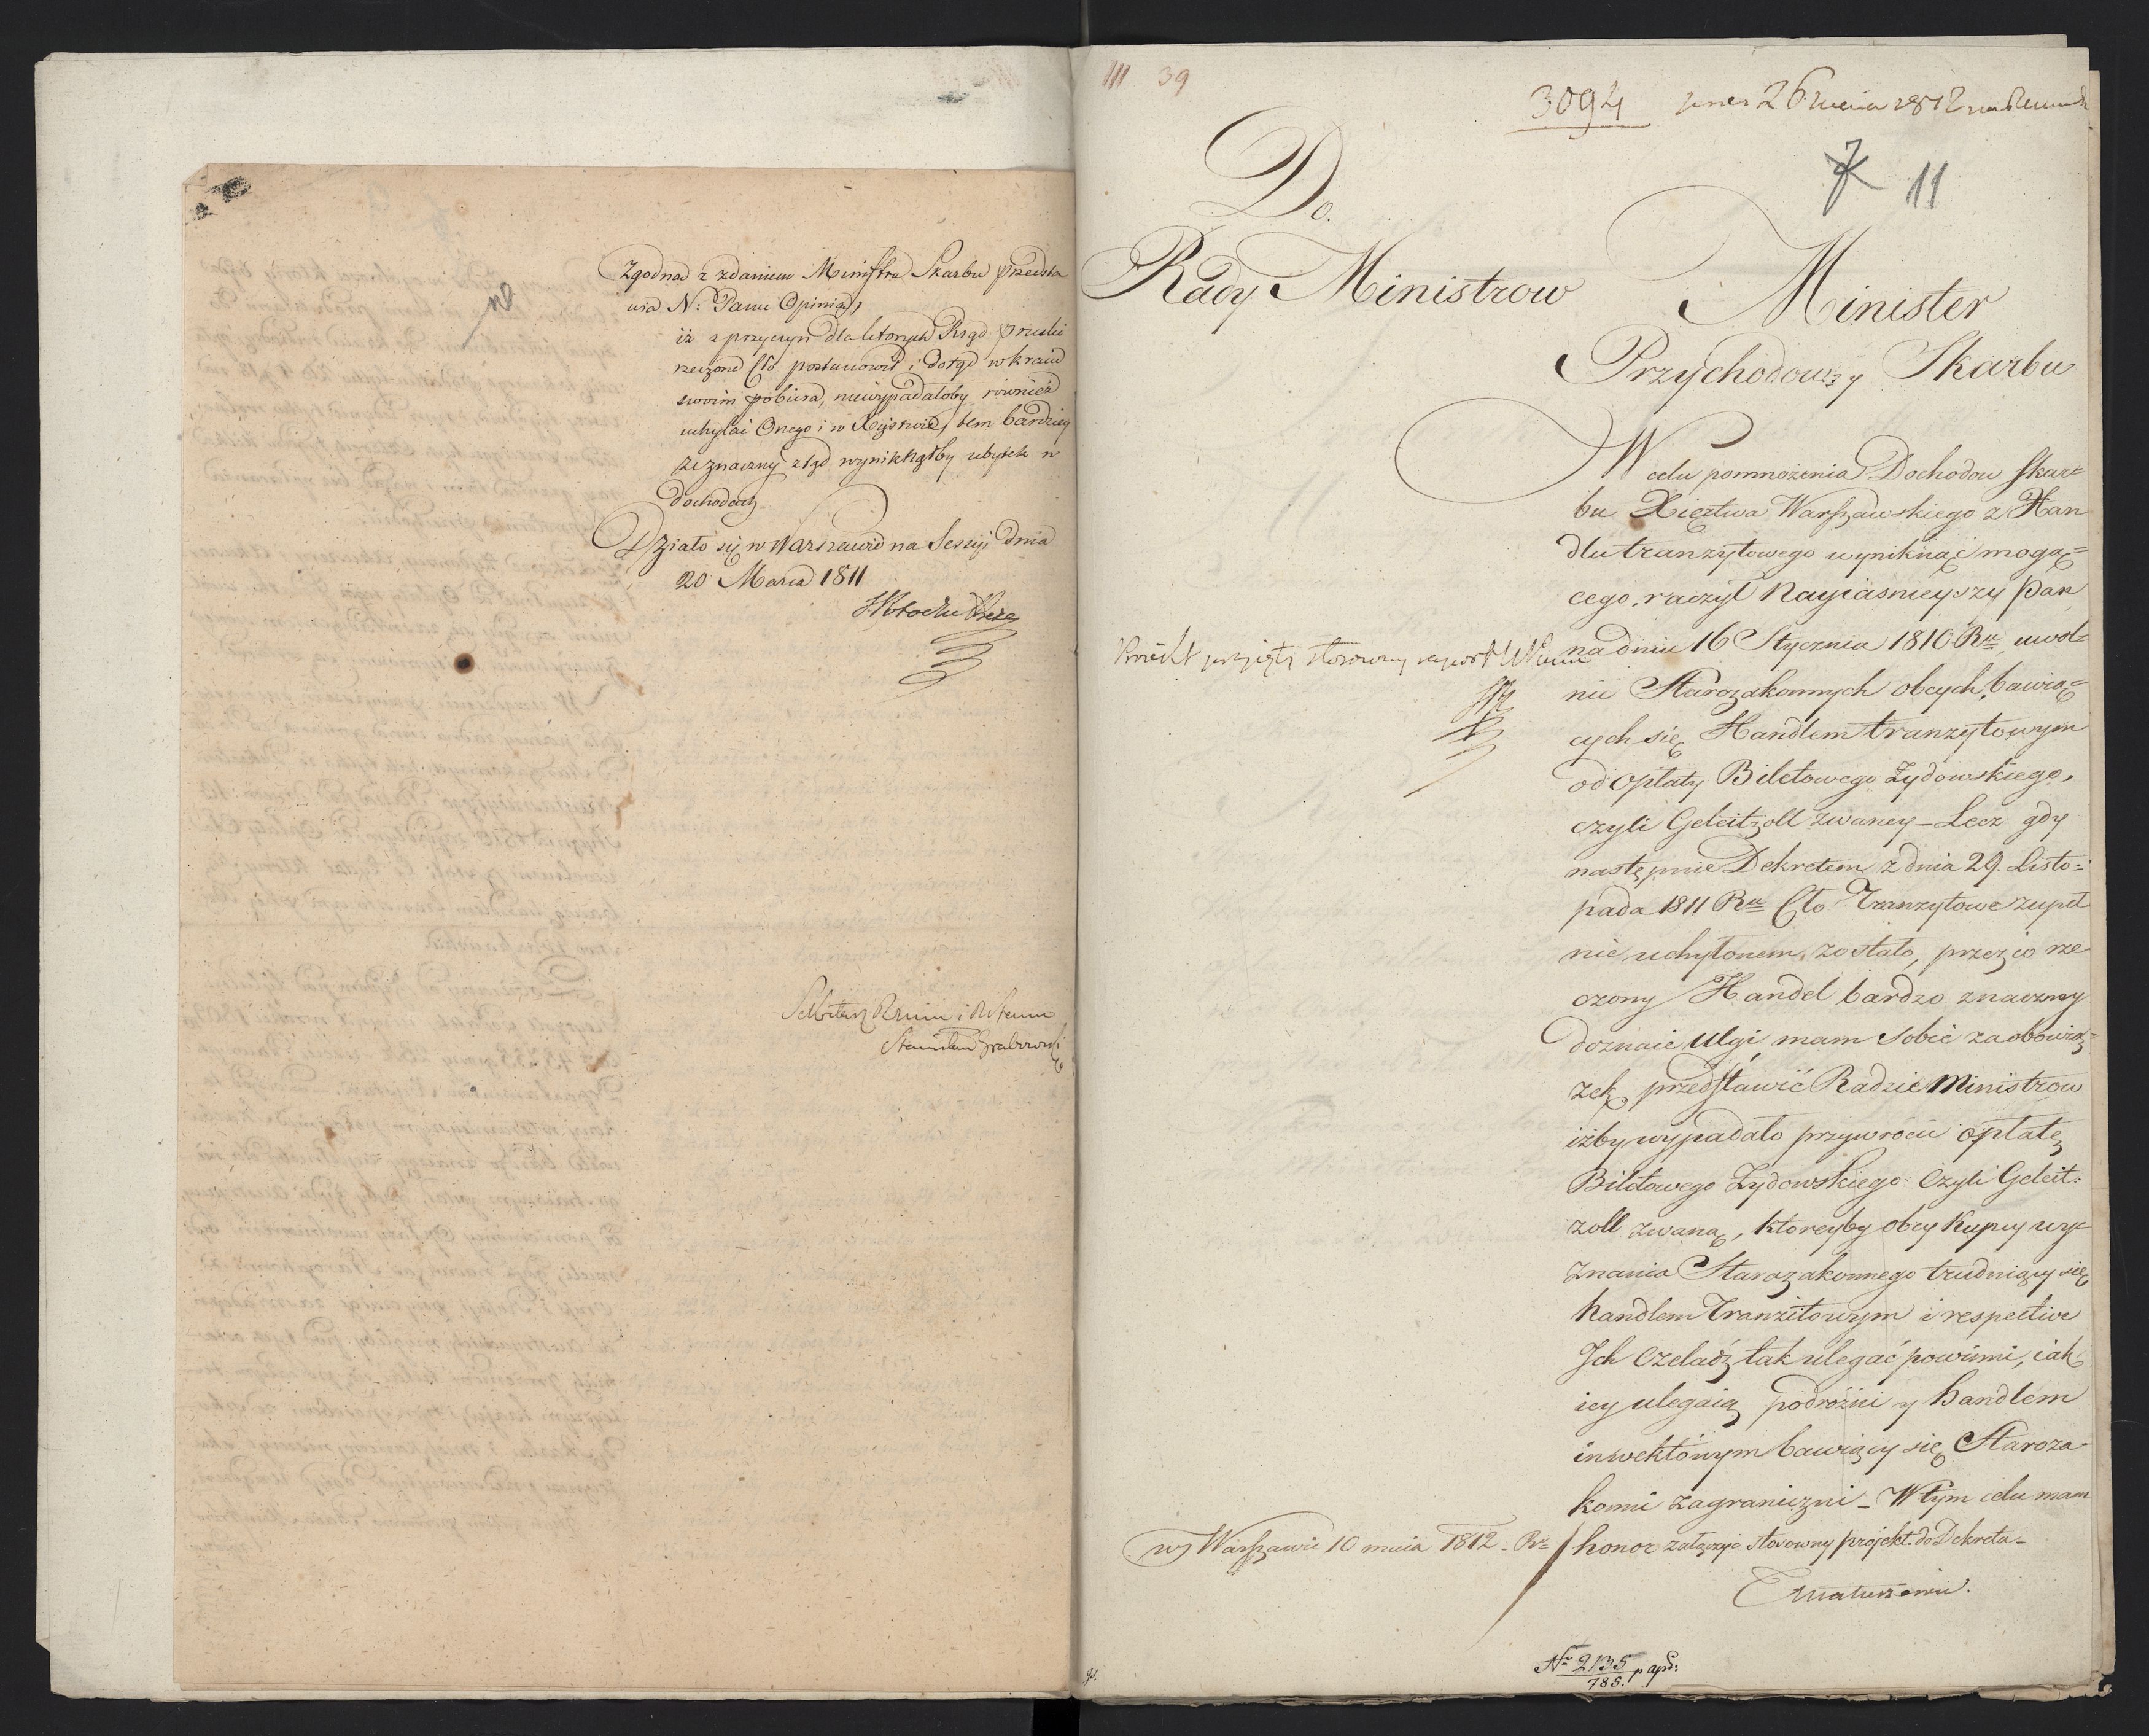 Zgodna z zdaniem Ministra Skarbu przedsta
wia N: Panu Opinią,
iż z przyczyn dla których Rząd Pruski
rzeczone Cło postanowił i dotąd w kraiu
swoim pobiera, niewypadałoby również
uchylać Onego i w Xięstwie, tem bardziey
że znaczny ztąd wyniknąłby ubytek w
dochodach
Działo się w Warszawie na Sessyi dnia
20 Marca 1811
Sekretarz
Stanisław Grabowski
111 39
3094 26 1812
7 11
Do
Rady Ministrow
Minister
Przychodow y Skarbu
W celu pomnożenia Dochodow skar=
bu Xięztwa Warszawskiego z Han
dlu tranzytowego wyniknąć mogą=
cego, raczył Nayiaśnieyszy Pan
na dniu 16 Stycznia 1810 Ru uwol=
nić Starozakonnych obcych, bawią=
cych się Handlem tranzytowym
od opłaty Biletowego Żydowskiego,
czyli Geleitzoll zwaney – Lecz gdy
następnie Dekretem z dnia 29. Listo=
pada 1811 Ru Cło Tranzytowe zupeł
nie uchylonem zostało, przez co rze
czony Handel bardzo znaczney
doznaie ulgi mam sobie za obowią=
zek przedstawić Radzie Ministrow
iżby wypadało przywrócić opłatę
Biletowego Żydowskiego czyli Geleit=
zoll zwaną, któreyby obcy Kupcy wy=
znania Starozakonnego trudniący się
handlem Tranzitowym i respective
Ich Czeladź tak ulegać powinni, iak
iey ulegaią podróżni y handlem
inwektowym bawiący się Staroza=
konni zagraniczni – W tym celu mam
honor załączyć stosowny projekt do Dekretu –
Projekt przyięty stosowny raport
w Warszawie 10 maia 1812 – Ru
Matuszewic.
Nro 2135
785.